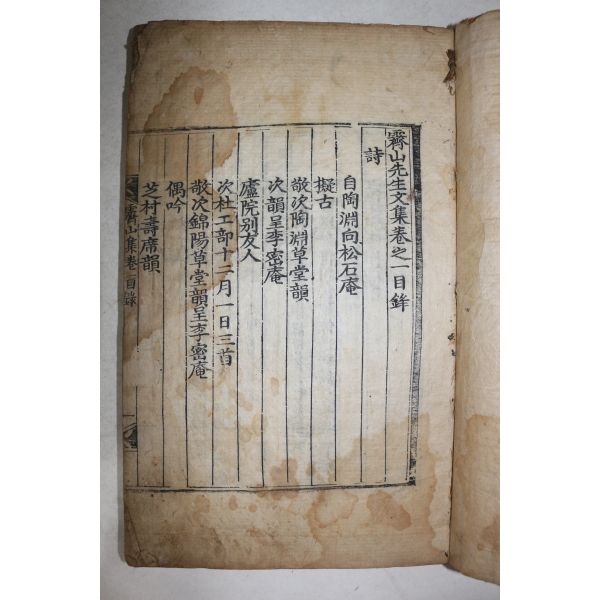 霽山先生文集卷之一目錄
詩
自陶淵向松石庵
擬古
敬次陶淵草堂韻
次韻呈李密庵
廬院別友人
次杜工部十二月一日三首
敬次錦陽草堂韻呈李密庵
偶吟
芝村壽席韻
霽山集卷一目錄